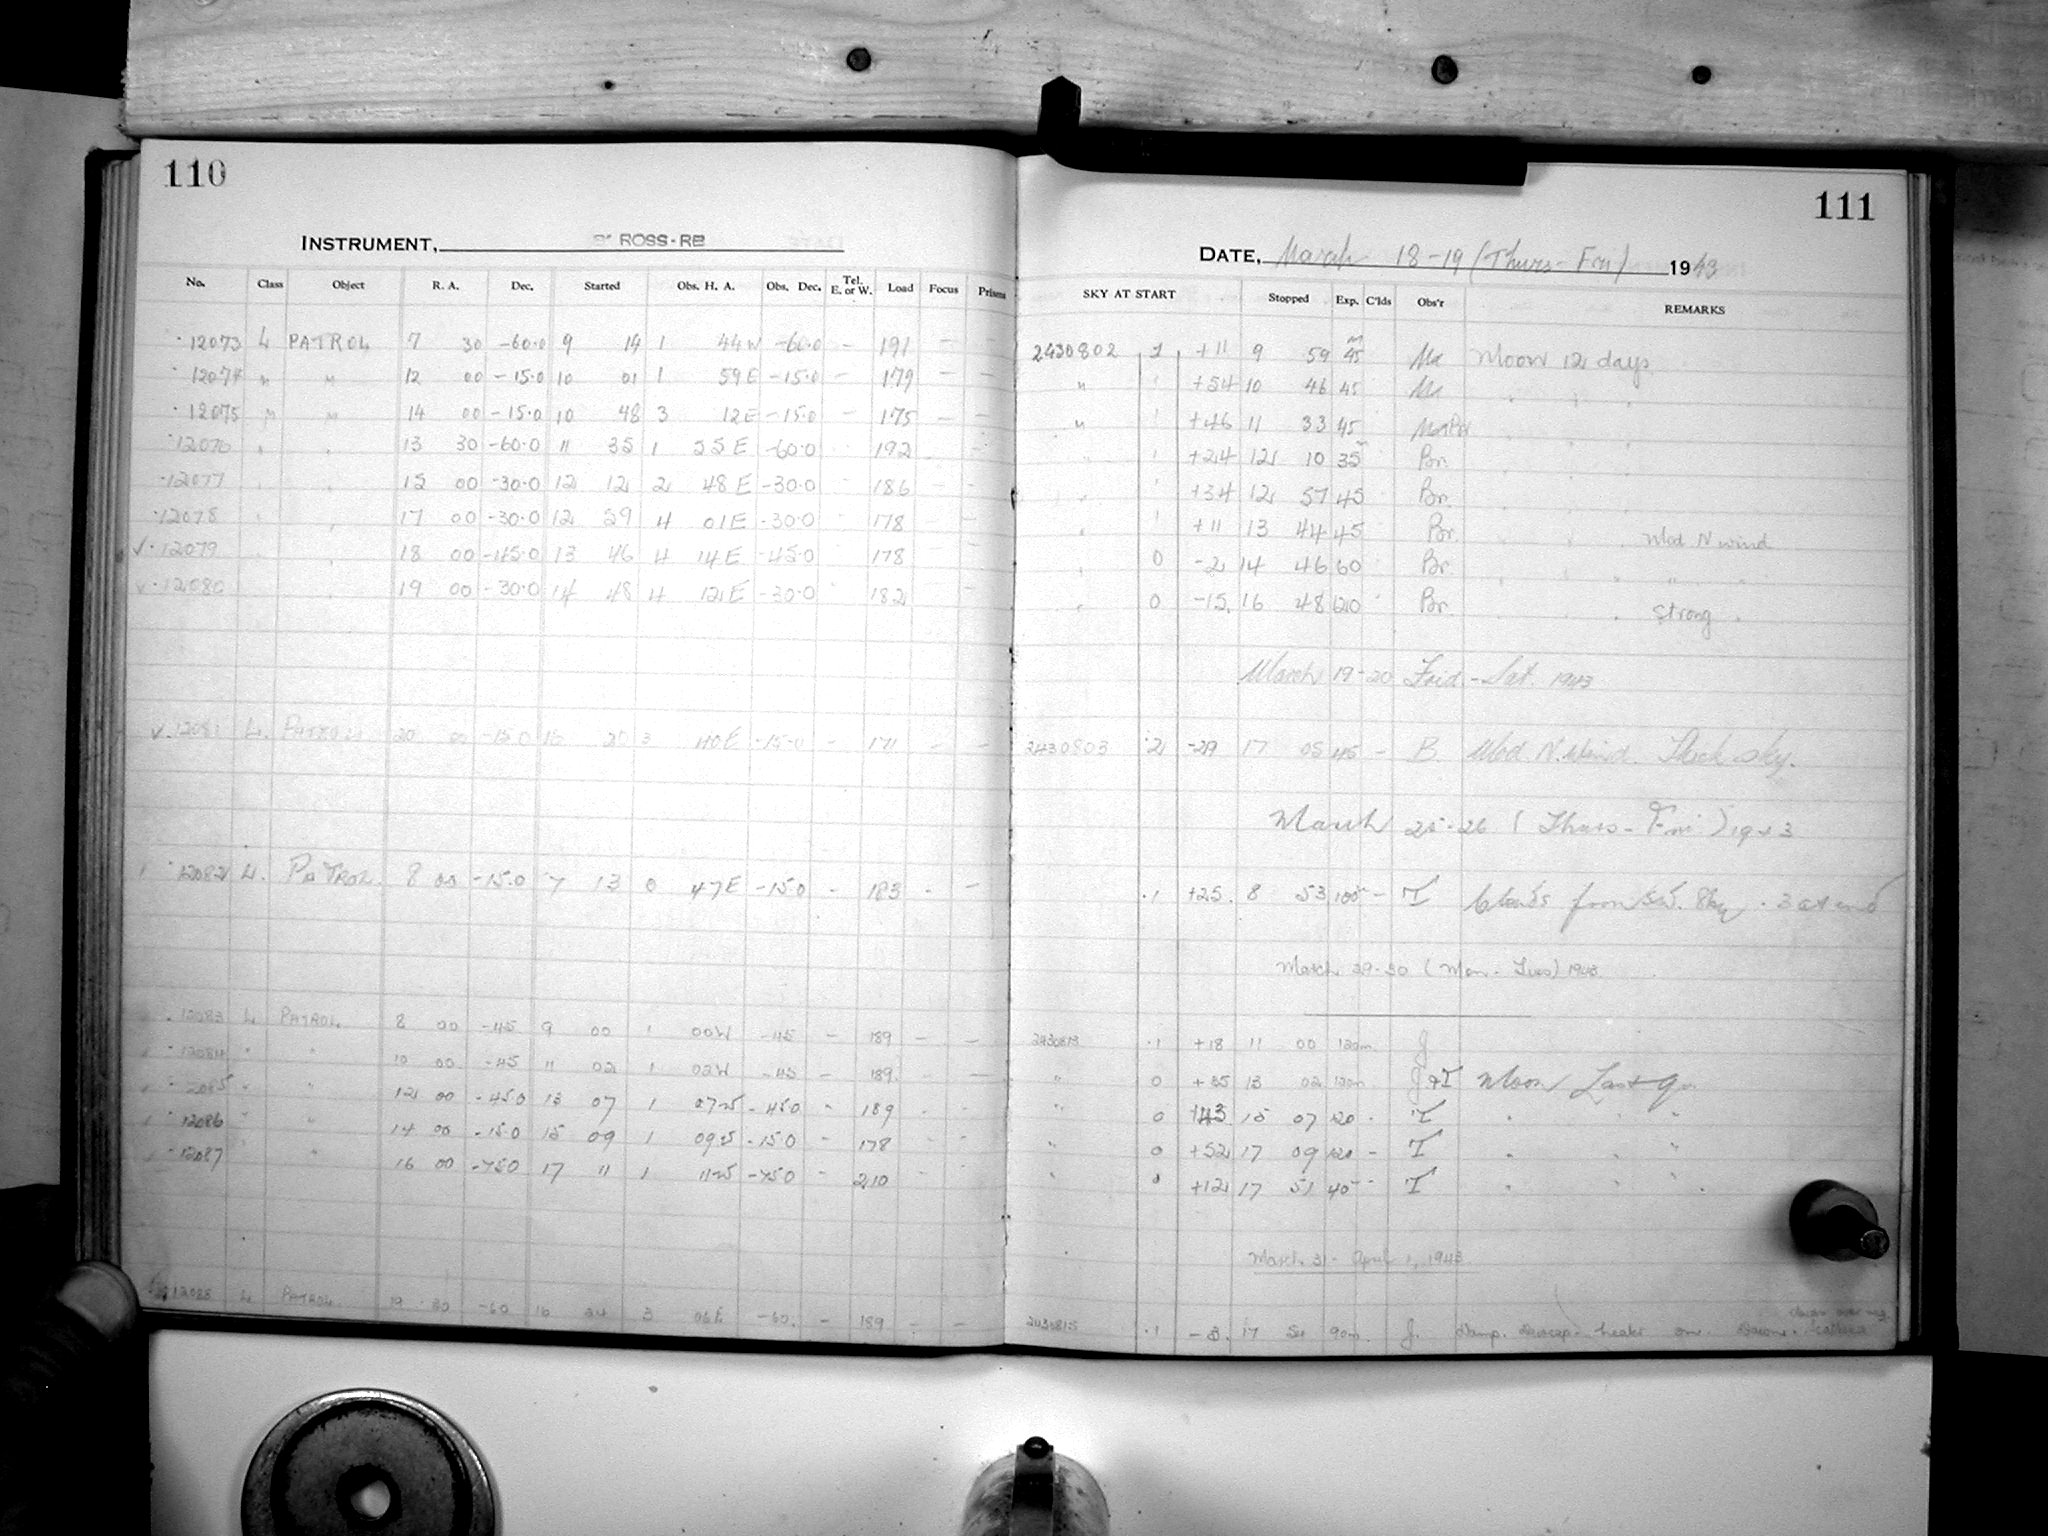 110
INSTRUMENT, 3" ROSS-RB
No. Class Object R. A. Dec. Started Obs. H. A. Obs. Dec. Tel. E. or W. Load Focus Prisms
12073 L PATROL 7 30 -60.0 9 14 1 44W -60.0 - 191 - -
12074 " " 12 00 -15.0 10 01 1 59E -15.0 - 179 - -
12075 " " 14 00 -15.0 10 48 3 12E -15.0 - 175 - -
12076 13 30 -60.0 11 35 1 55E -60.0 192
12077 15 00 -30.0 12 12 2 48E -30.0 186
12078 17 00 -30.0 12 59 4 01E -30.0 178
✓ 12079 18 00 -45.0 13 46 4 14E -45.0 178
✓ 12080 19 00 -30.0 14 48 4 12E -30.0 182
✓ 12081 L. PATROL 20 00 -15.0 16 20 3 40E -15.0 - 171 - -
12082 L. PATROL 8 00 -15.0 7 13 0 47E -15.0 - 183 - -
12083 L PATROL 8 00 -45 9 00 1 00W -45 - 189 - -
12084 " " 10 00 -45 11 02 1 02W -45 - 189 - -
12085 " " 12 00 -45.0 13 07 1 07W -45.0 - 189
12086 " " 14 00 -15.0 15 09 1 09W -15.0 - 178
12087 " " 16 00 -75.0 17 11 1 11W -75.0 - 210
12088 L PATROL 19 30 -60 16 24 3 06E -60. - 189 - -
111
DATE, March 18-19 (Thurs-Fri) 1943
SKY AT START Stopped Exp. C'lds Obs'r REMARKS
2430802 1 +11 9 59 45m Mc Moon 12 days
" 1 +54 10 46 45 Mc
" 1 +46 11 33 45
1 +24 12 10 35 Br.
1 +34 12 57 45 Br.
1 +11 13 44 45 Br. Mod N wind
0 -2 14 46 60 Br. " "
0 -15 16 48 120 Br. Strong "
March 19-20 Frid-Sat. 1943
2430803 2 -29 17 05 45 - B. Mod. N. Wind. Thick sky.
March 25-26 (Thurs-Fri) 1943
.1 +25. 8 53 100 - T Clouds from SW. Sky .3 at end
March 29-30 (Mon-Tues) 1943
2430813 .1 +18 11 00 120m. J
" 0 +35 13 02 120m. J & T Moon Last Qr.
" 0 +43 15 07 120 - T
" 0 +52 17 09 120 - T
" 0 +12 17 51 40 - T
March 31 - April 1, 1943
2430815 .1 -8. 17 54 90m J. Damp. Dewcap heater on.